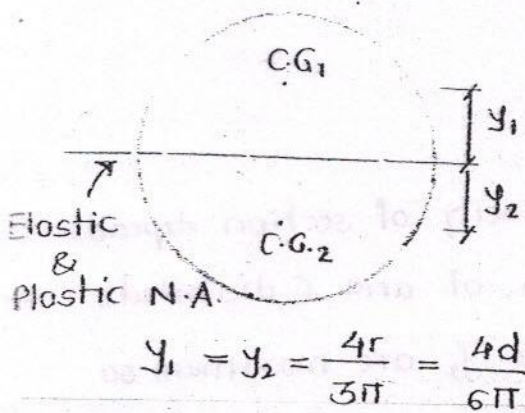 C.G₁
y₁
y₂
Elastic
&
Plastic N.A.
C.G.₂
y₁ = y₂ = 4r/3π = 4d/6π